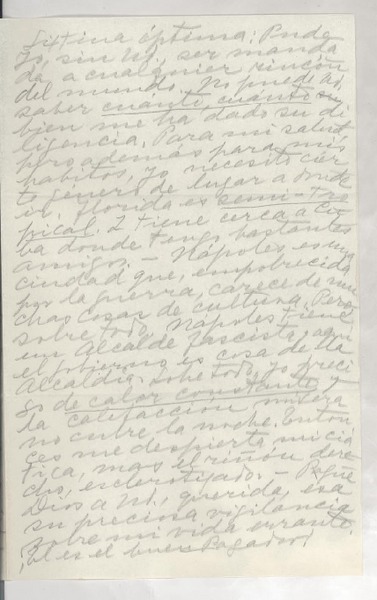 Lixtina óptima: Pude
yo, sin Ud., ser manda
da a cualquier rincón
del mundo. No puede Ud.
saber cuanto, cuánto
bien me ha dado su di
ligencia. Para mi salud,
pero además para mis
habitos, yo necesito cier
to género de lugar a donde
ir. Florida es semi-tro
pical. I tiene cerca a Cu
ba donde tengo bastantes
amigos. - Nápoles es una
ciudad que, empobrecida
por la guerra, carece de mu
chas cosas de cultura. Pero,
sobre todo, Nápoles tiene
un Alcalde fascista, i aquí
el gobierno es cosa de la
Alcaldía. Sobre todo, yo preci
so de calor constante y
la calefacción misera
no cubre la noche. Enton
ces me despierta mi ciá
tica, mas el riñón dere
cho, esclerotizado. - Pague
Dios a Ud., querida, esa
su preciosa vigilancia
sobre mi vida errante.
Él es el buen Pagador!